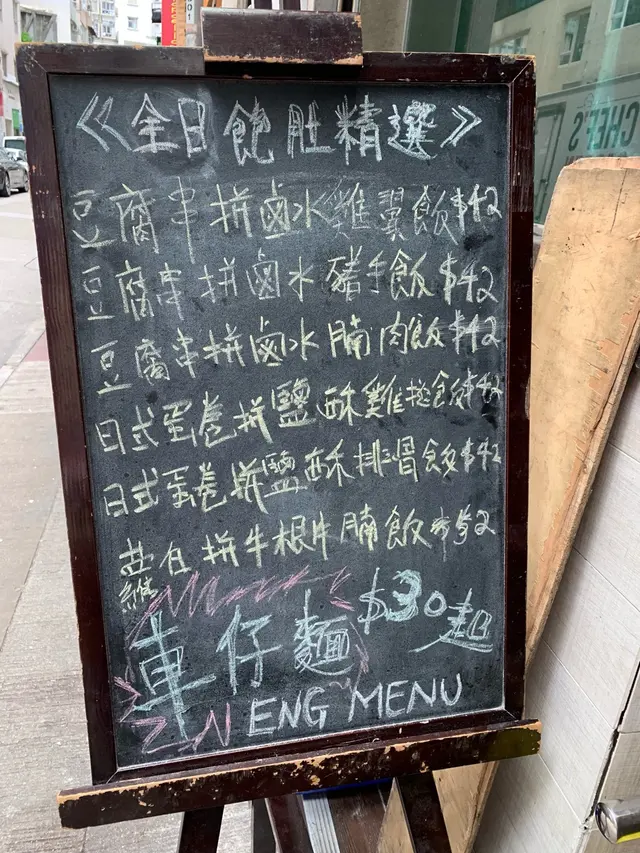 《全日飽肚精選》
豆腐串拼鹵水雞翼飯$42
豆腐串拼鹵水豬手飯$42
豆腐串拼鹵水腩肉飯$42
日式蛋卷拼鹽酥雞扒飯$42
日式蛋卷拼鹽酥排骨飯$42
拼牛根牛腩飯$52
車仔麵$30起
ENG MENU